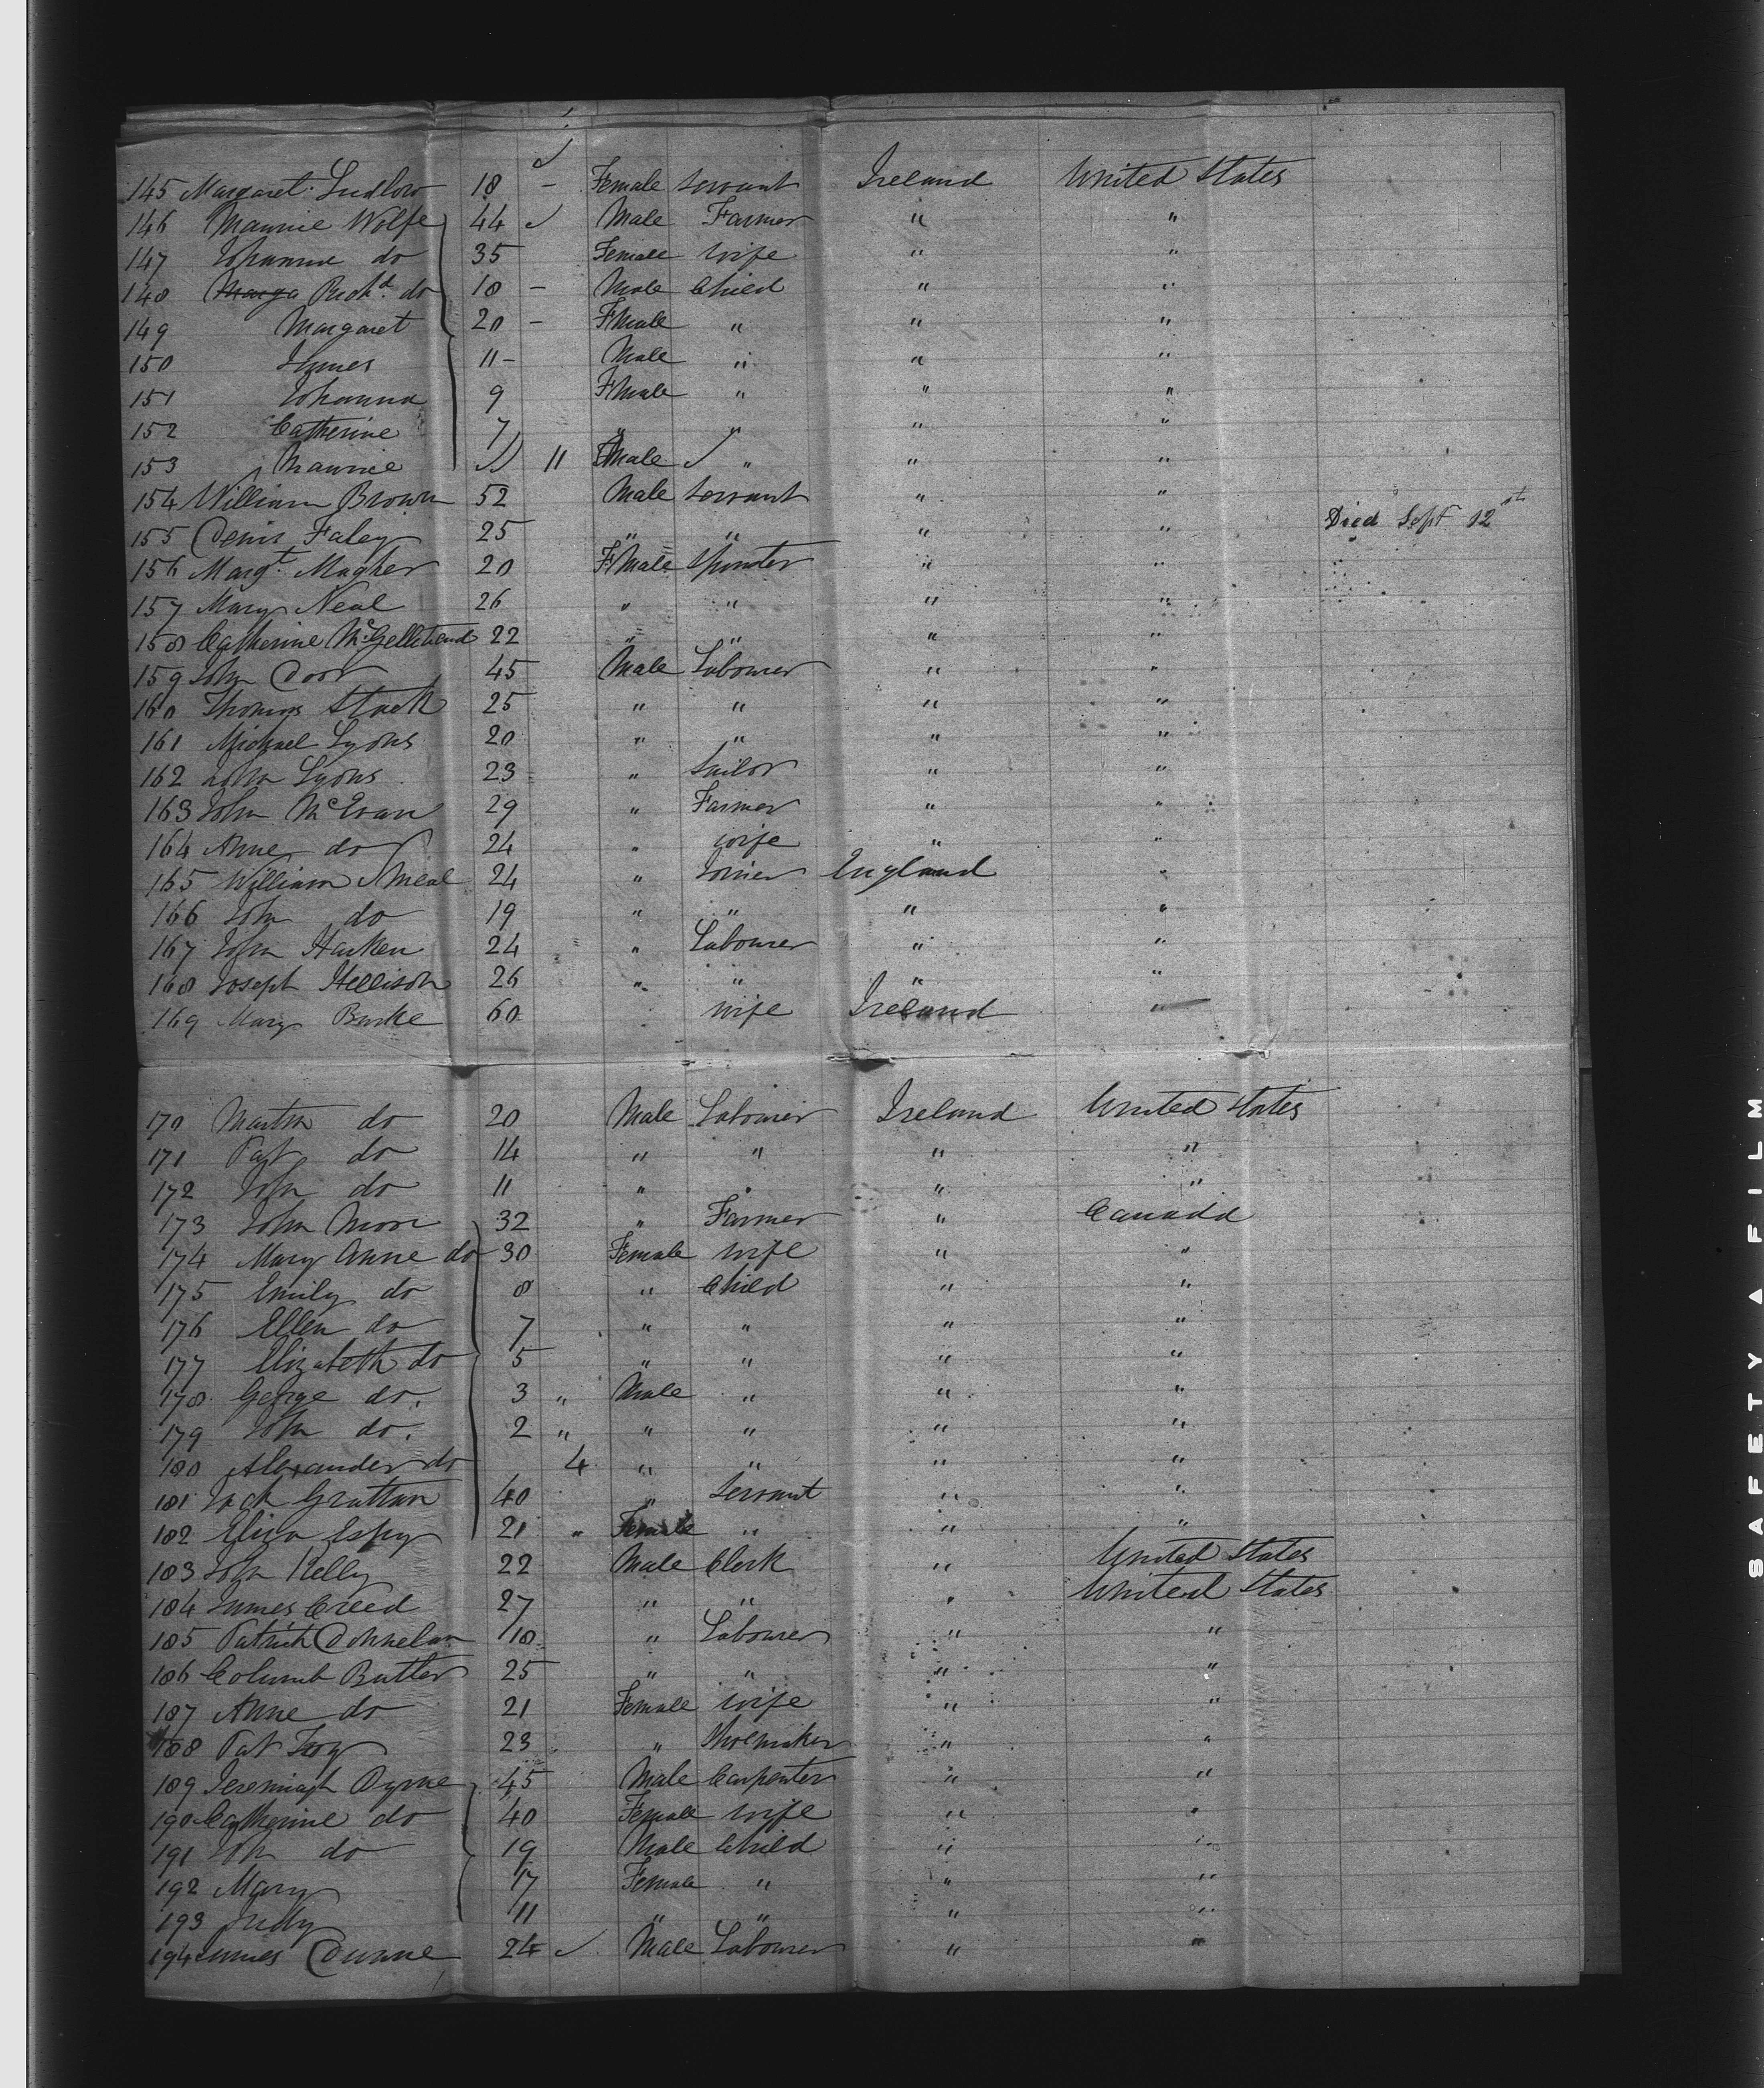 145 Margaret Ludlow 18 - Female Servant Ireland United States
146 Maurice Wolfe 44 ✓ Male Farmer " "
147 Johanna do 35 Female wife " "
148 Marga Richd. do 18 - Male Child " "
149 Margaret 20 - FMale " " "
150 James 11 - Male " " "
151 Johanna 9 FMale " " "
152 Catherine 7 " " " "
153 Maurice 11 Male " " "
154 William Brown 52 Male Servant " "
155 Denis Faley 25 " " " " Died Sept 12
156 Margt. Magher 20 FMale Spinster " "
157 Mary Neal 26 " " " "
158 Catherine 22 " " " "
159 John 45 Male Labourer " "
160 Thomas Stack 25 " " " "
161 Michael Lyons 20 " " " "
162 John Lyons 23 " " "
163 John McEvan 29 " Farmer " "
164 Anne do 24 " wife " "
165 William 24 " Joiner England "
166 John do 19 " " " "
167 John Harken 24 " Labourer " "
168 Joseph Hellison 26 " " " "
169 Mary Burke 60 wife Ireland "
170 Martin do 20 Male Labourer Ireland United States
171 Pat do 14 " " " "
172 John do 11 " " " "
173 John Moore 32 " Farmer " Canada
174 Mary Anne do 30 Female wife " "
175 Emily do 8 " Child " "
176 Ellen do 7 " " " "
177 Elizabeth do 5 " " " "
178 George do. 3 " Male " " "
179 John do. 2 " " " " "
180 Alexander do 4 " " " "
181 Grattan 40 " Servant " "
182 Eliza Espy 21 " Female " " "
183 John Kelly 22 Male Clerk " United States
184 James Creed 27 " " " United States
185 Patrick Donnelan 18 " Labourer " "
186 Columb Butler 25 " " " "
187 Anne do 21 Female wife " "
188 Pat Foy 23 " Shoemaker " "
189 Jeremiagh Dyrne 45 Male Carpenter " "
190 Catherine do 40 Female wife " "
191 John do 19 Male Child " "
192 Mary 17 Female " " "
193 Judy 11 " " " "
194 James Dunne 24 ✓ Male Labourer " "
SAFETY A FILM